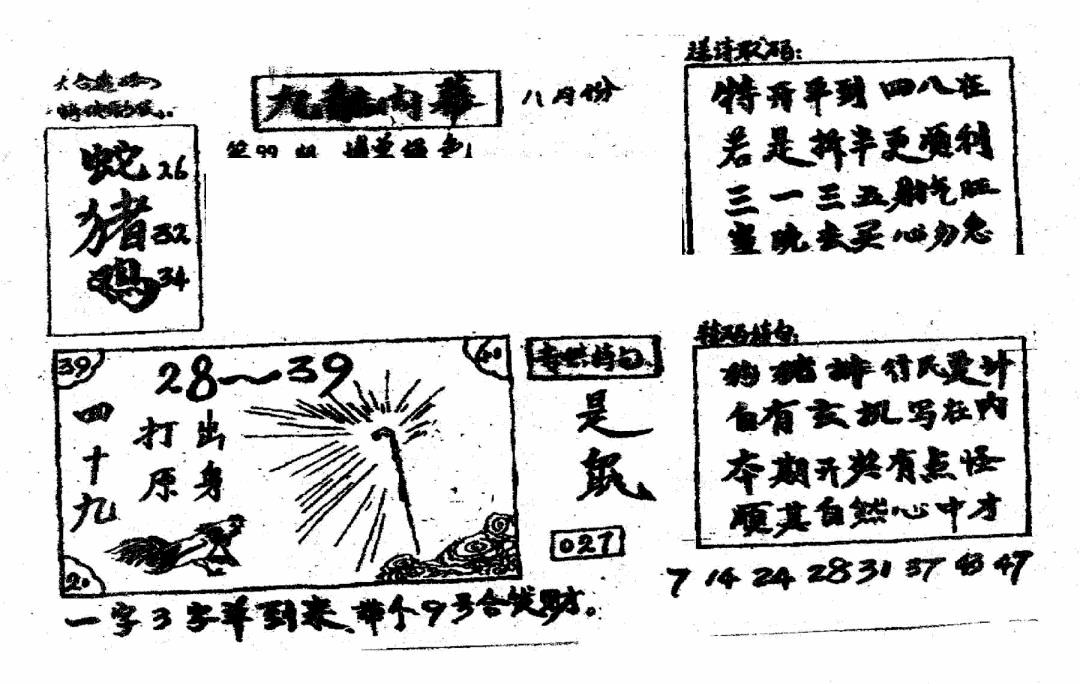 九龍内幕
八月份
蛇 26
猪 32
鸡 34
特开平到四八在
若是拆半更顺利
三一三五财气旺
当晚去买心勿急
39
28~39
四十九
打出
原身
20
是鼠
027
狗猪排行民受计
自有玄机写在内
本期开奖有点怪
顺其自然心中才
7 14 24 28 31 37 43 47
一字3字单到来,带个9号合钱财。